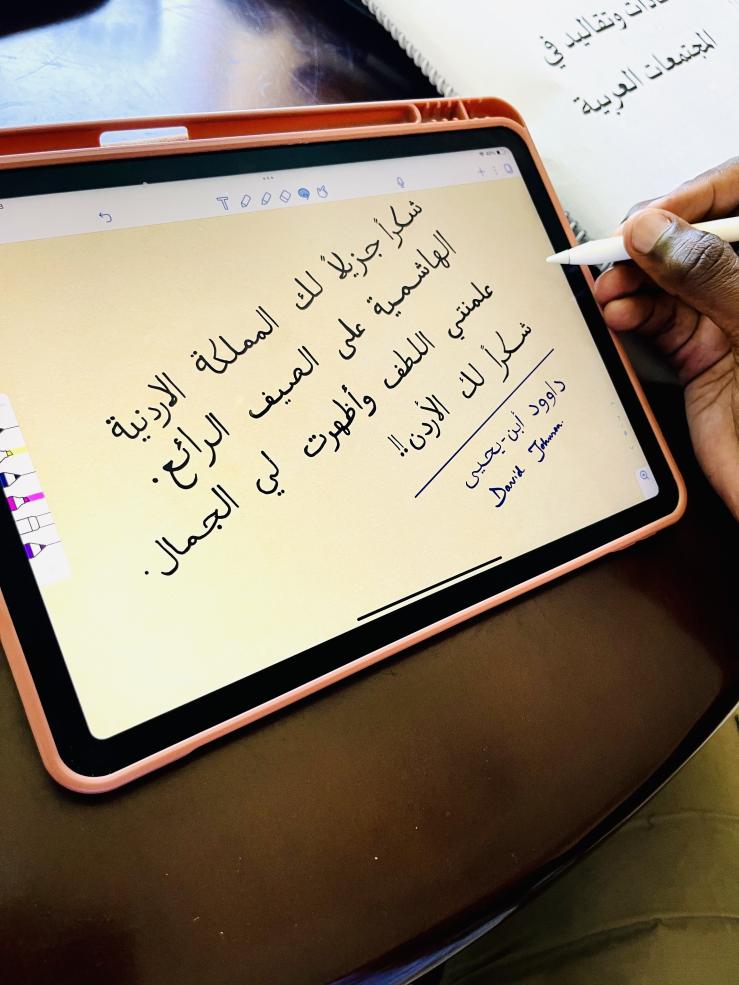 وتقاليد في
المجتمعات العربية
شكراً جزيلاً لك المملكة الاردنية
الهاشمية على الصيف الرائع.
علمنتي اللطف وأظهرت لي الجمال.
شكراً لك الأردن!!
داوود أبن-يحيى
David Johnson